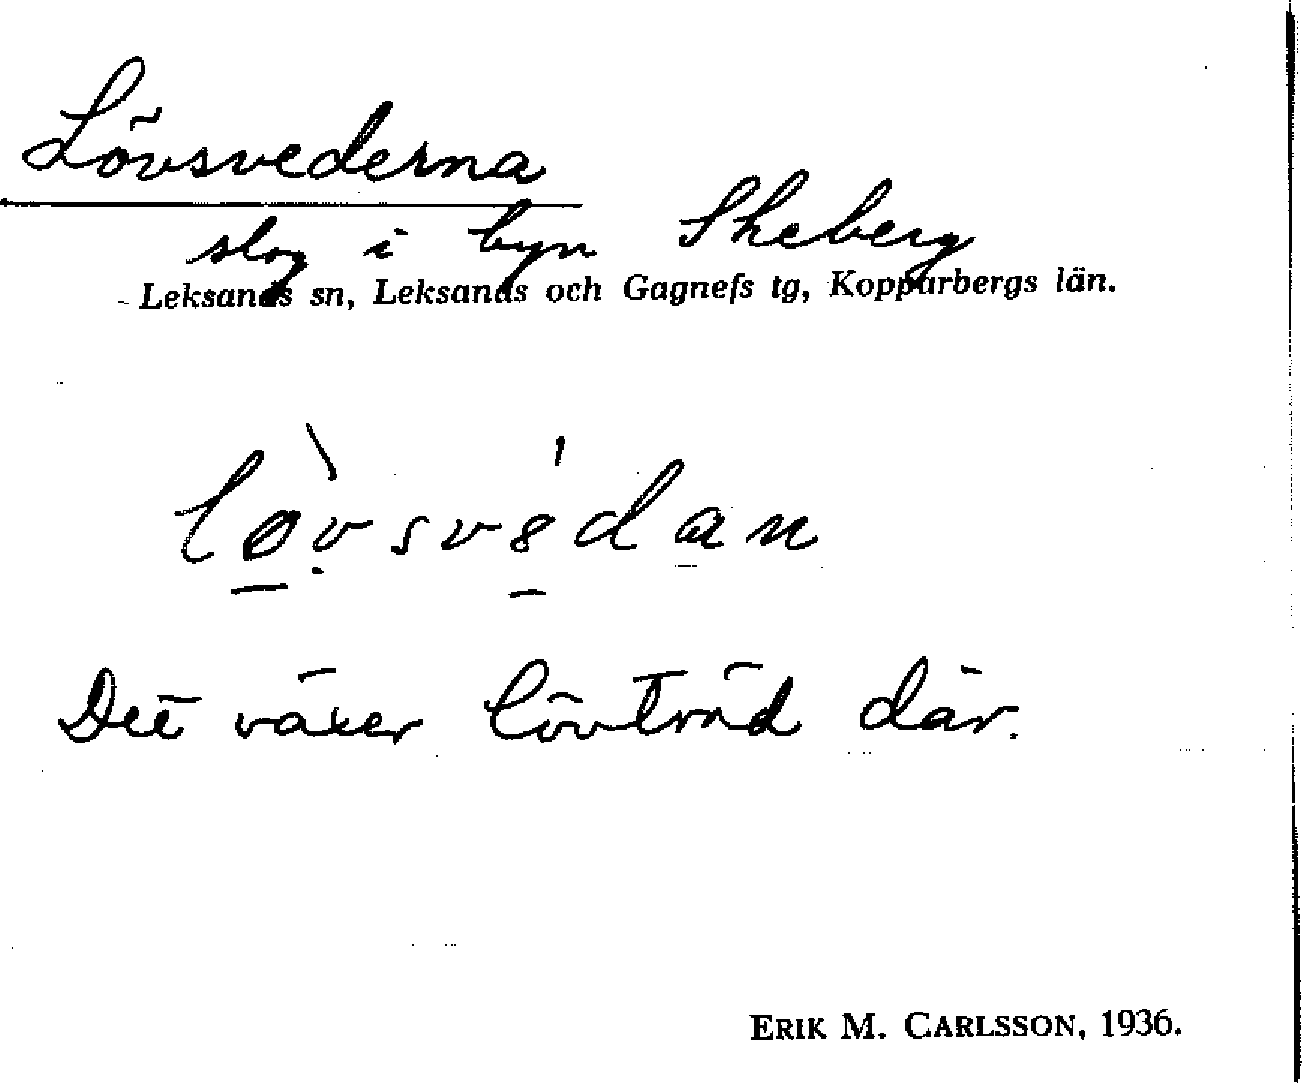 Lövsvederna
slog i byn Skeberg
Leksands sn, Leksands och Gagnefs tg, Kopparbergs län.
lø̠̀vsvedan
Det växer lövträd där.
ERIK M. CARLSSON, 1936.